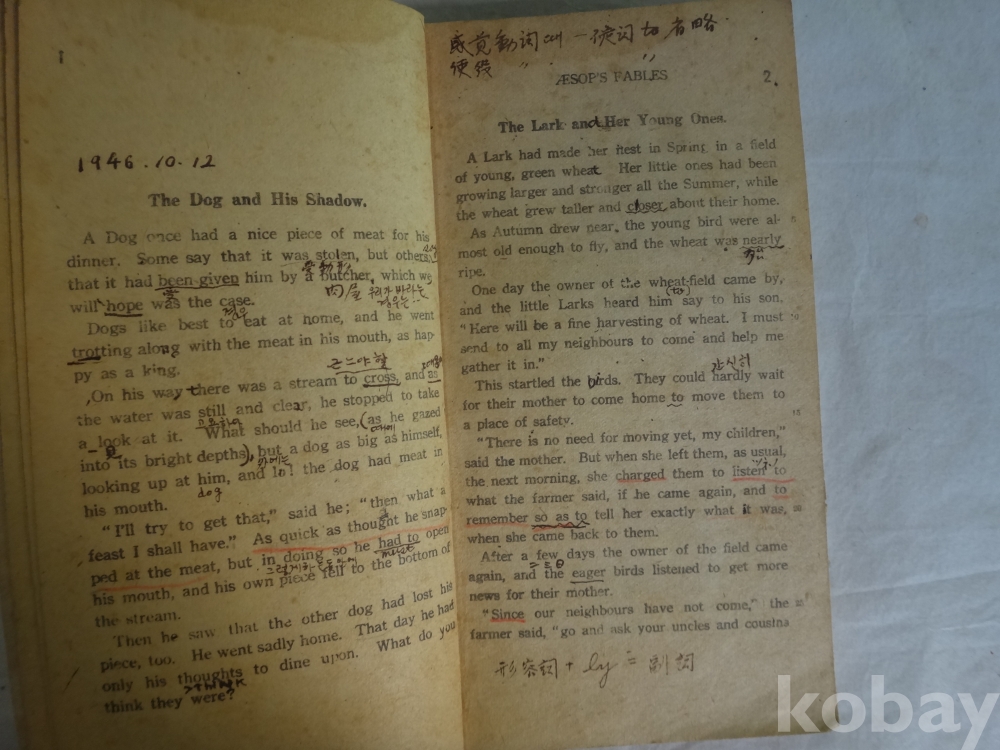 1946.10.12
The Dog and His Shadow.
A Dog once had a nice piece of meat for his
dinner. Some say that it was stolen, but others,
that it had been given him by a butcher, which we
肉屋 우리가 바라는
will hope was the case.
경우
Dogs like best to eat at home, and he went
trotting along with the meat in his mouth, as hap-
py as a king.
On his way there was a stream to cross, and as
the water was still and clear, he stopped to take
a look at it. What should he see, (as he gazed
into its bright depths), but a dog as big as himself,
looking up at him, and lo! the dog had meat in
dog
his mouth.
"I'll try to get that," said he; "then what a
feast I shall have." As quick as thought he snap-
ped at the meat, but in doing so he had to open
must
his mouth, and his own piece fell to the bottom of
the stream.
Then he saw that the other dog had lost his
piece, too. He went sadly home. That day he had
only his thoughts to dine upon. What do you
>think
think they were?
感覚動詞 to 省略
使役 " "
ÆSOP'S FABLES 2
The Lark and Her Young Ones.
A Lark had made her nest in Spring in a field
of young, green wheat. Her little ones had been
growing larger and stronger all the Summer, while
the wheat grew taller and closer about their home.
As Autumn drew near, the young bird were al-
most old enough to fly, and the wheat was nearly
ripe.
One day the owner of the wheat-field came by,
(to)
and the little Larks heard him say to his son,
"Here will be a fine harvesting of wheat. I must
send to all my neighbours to come and help me
gather it in."
간신히
This startled the birds. They could hardly wait
for their mother to come home to move them to
a place of safety.
"There is no need for moving yet, my children,"
said the mother. But when she left them, as usual,
the next morning, she charged them to listen to
what the farmer said, if he came again, and to
remember so as to tell her exactly what it was,
when she came back to them.
After a few days the owner of the field came
again, and the eager birds listened to get more
news for their mother.
"Since our neighbours have not come," the
farmer said, "go and ask your uncles and cousins
形容詞 + ly = 副詞
kobay